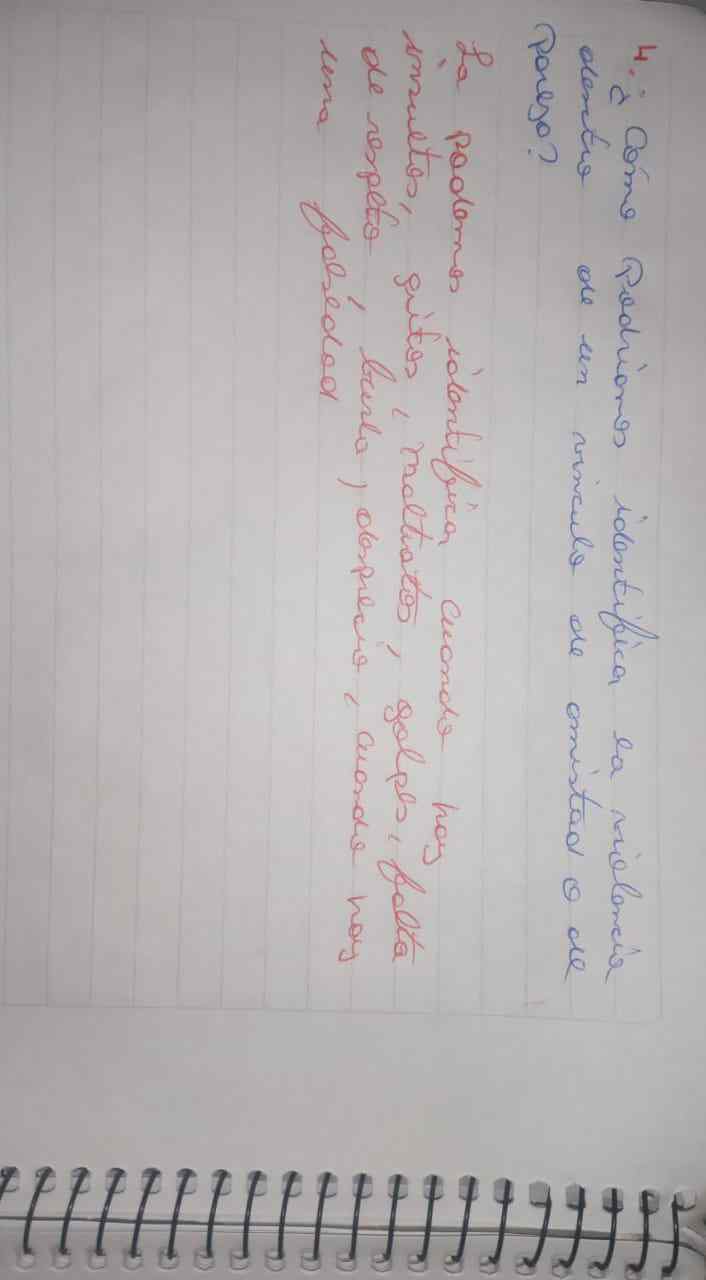 4. ¿Cómo Podriamos identificar la violencia
dentro de un vinculo de amistad o de
Pareja?
La podemos identificar cuando hay
insultos, gritos, maltratos, golpes, falta
de respeto, burla, desprecio, cuando hay
una falsedad